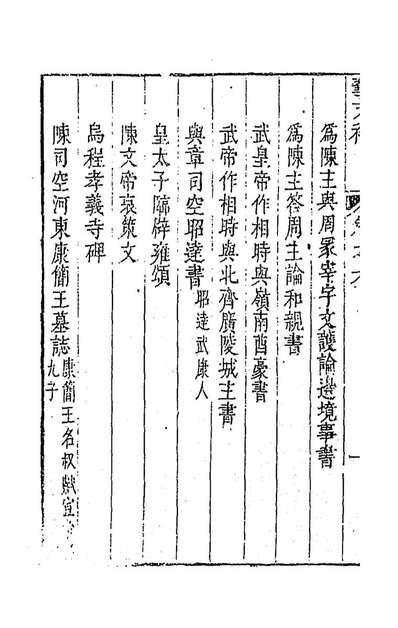 為陳主與周冢宰宇文護論邊境事書
為陳主答周主論和親書
武皇帝作相時與嶺南酋豪書
武帝作相時與北齊廣陵城主書
與章司空昭達書 昭達武康人
皇太子臨辟雍頌
陳文帝哀策文
烏程孝義寺碑
陳司空河東康簡王墓誌 康簡王名叔獻宣
九子